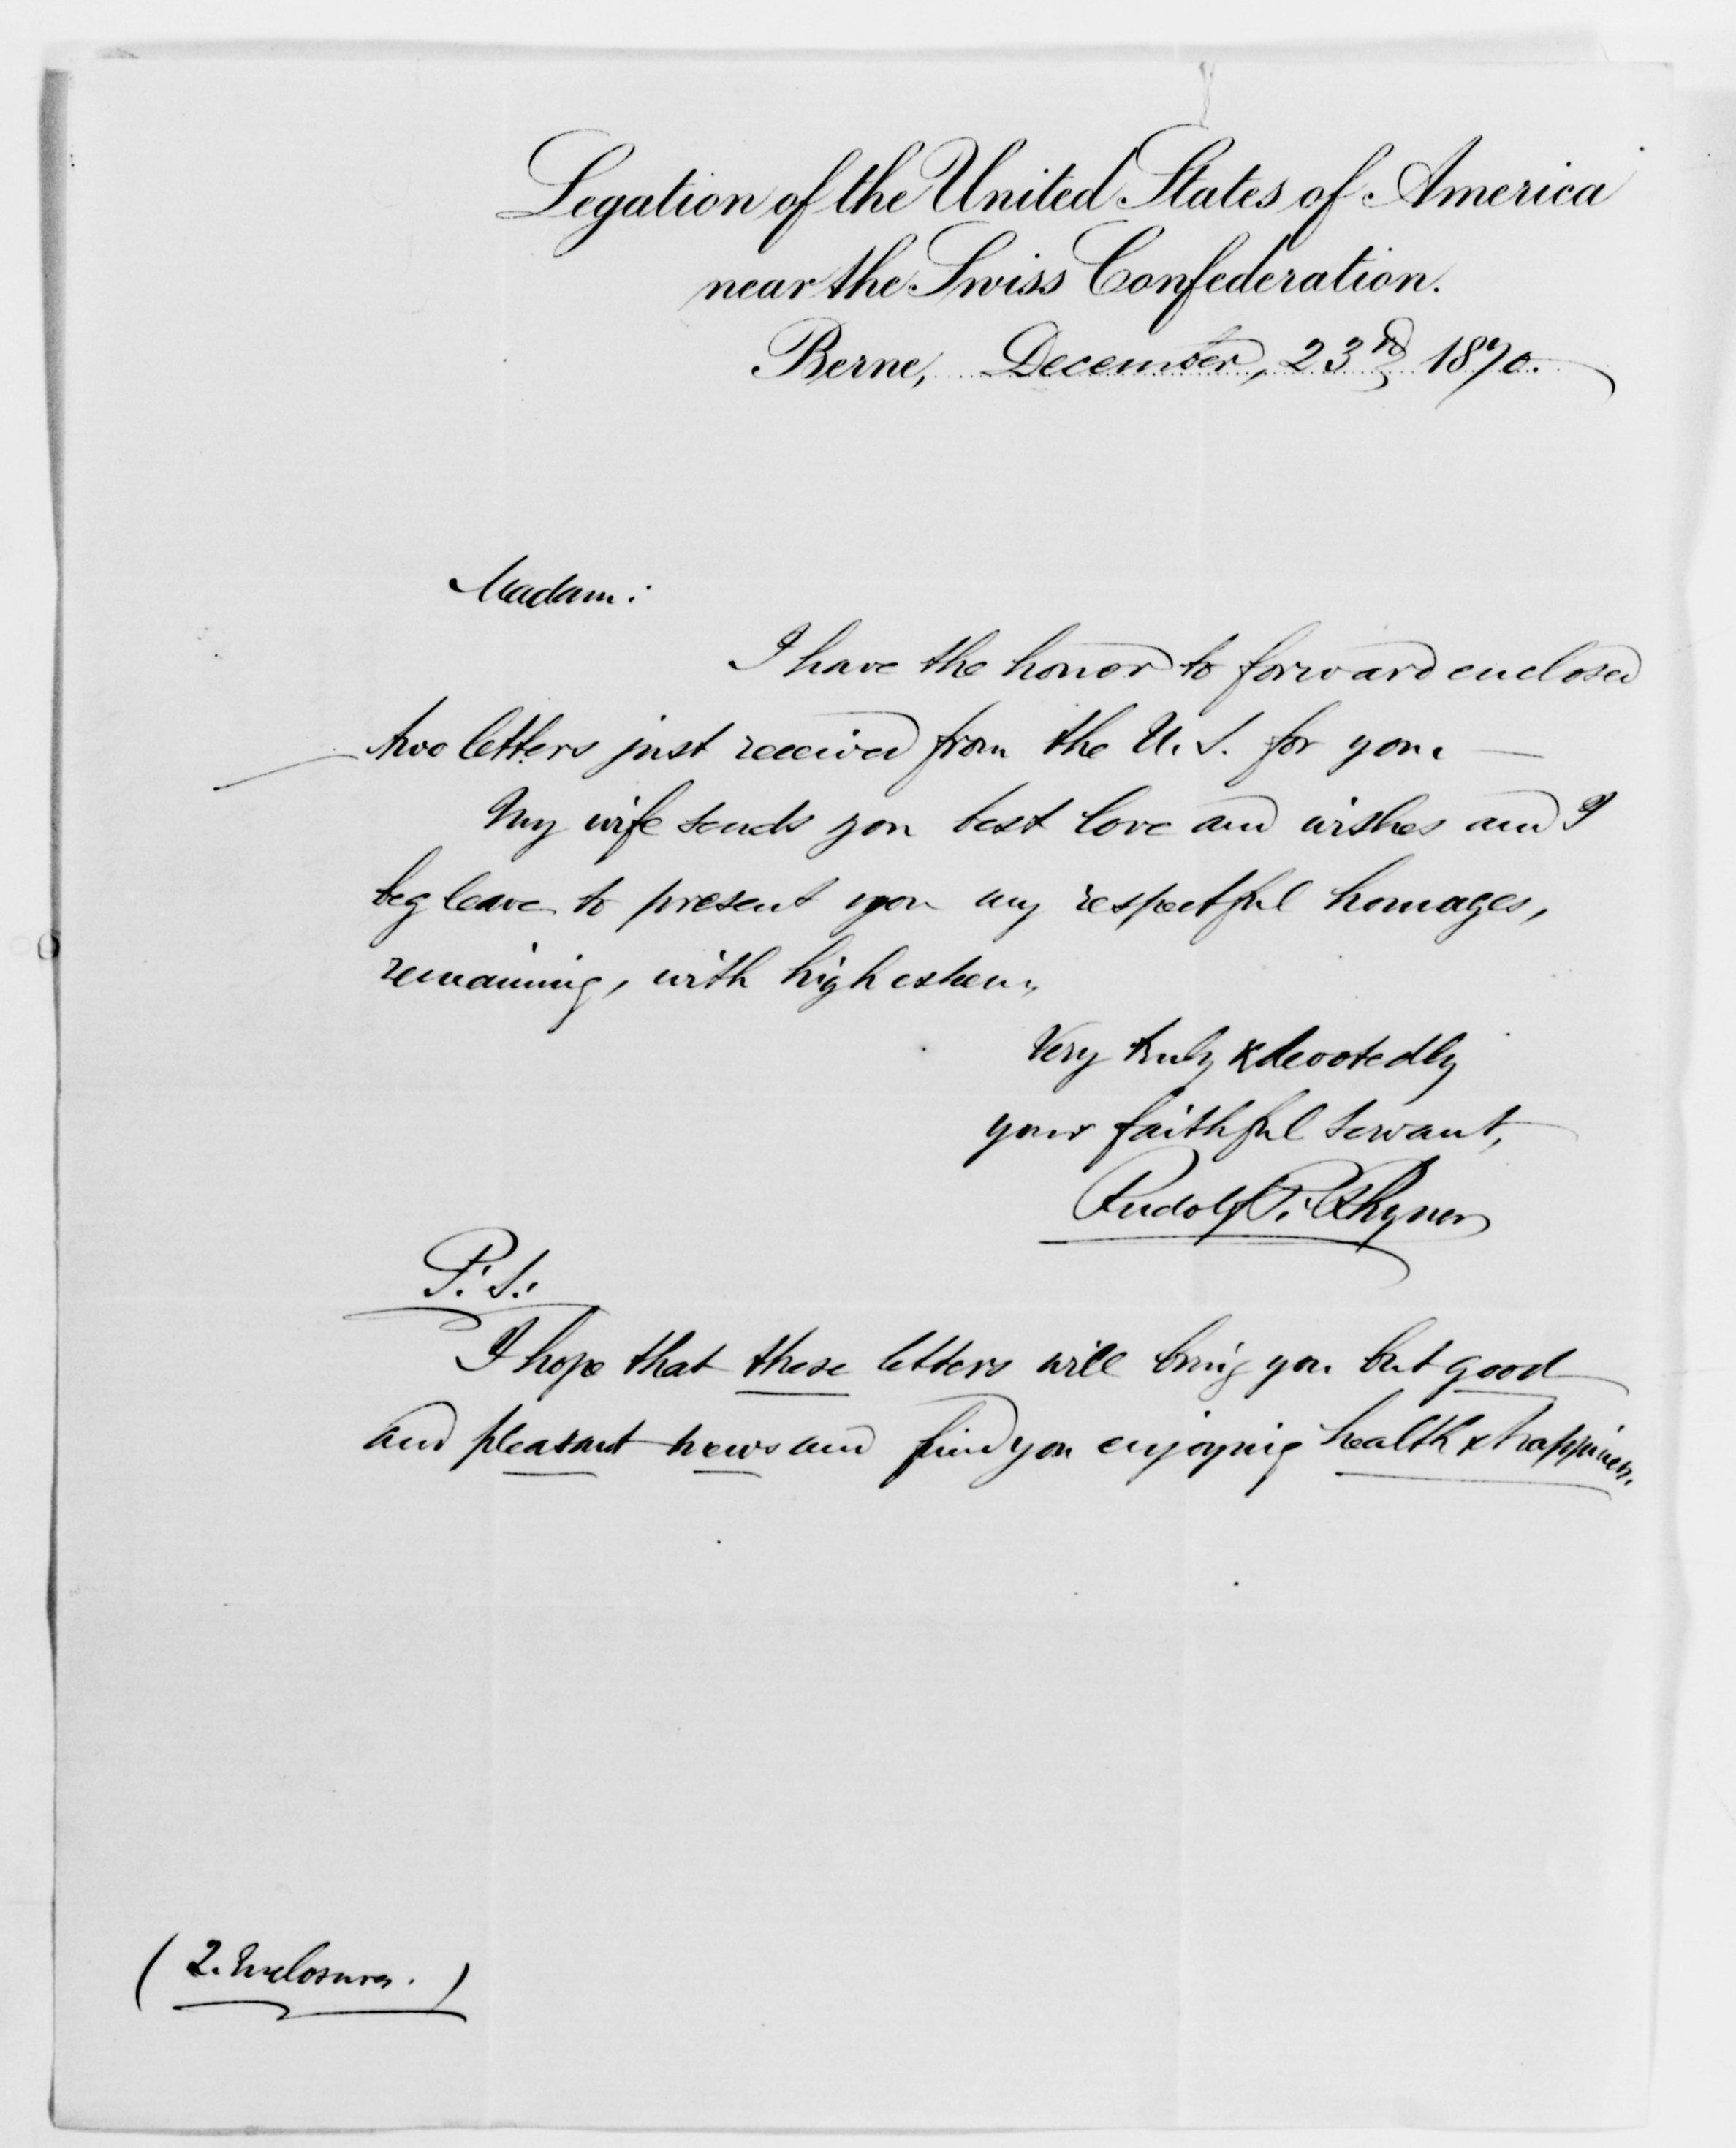 Legation of the United States of America
near the Swiss Confederation.
Berne, December, 23rd 1870.
Madam:
I have the honor to forward enclosed
two letters just received from the U. S. for you.
My wife sends you best love and wishes and I
beg leave to present you my respectful homages,
remaining, with high esteem,
Very truly & devotedly
your faithful servant,
Rudolf P. Rhyner
P. S.:
I hope that these letters will bring you but good
and pleasant news and find you enjoying health & happiness.
(2. Enclosures.)